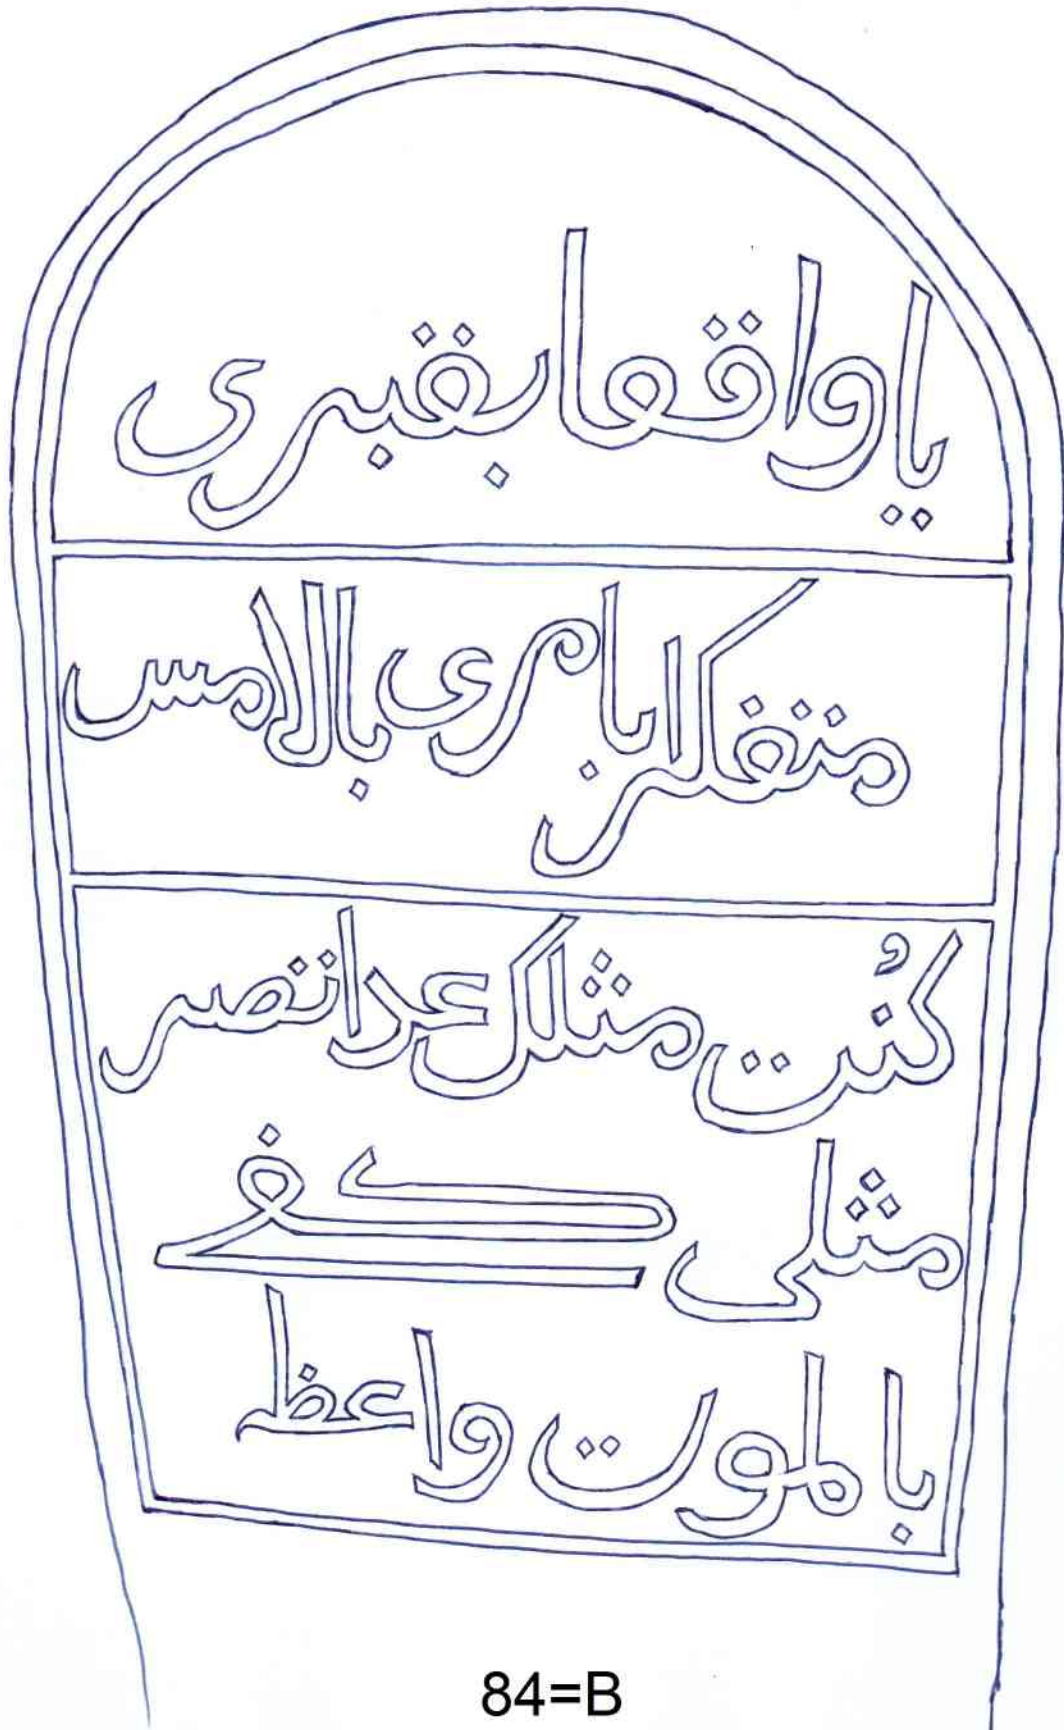 ياواقفا بقبرى
متفكرا بامرى بالامس
كُنت مثلك غدا تصر
مثلى كفى
بالموت واعظ
84=B